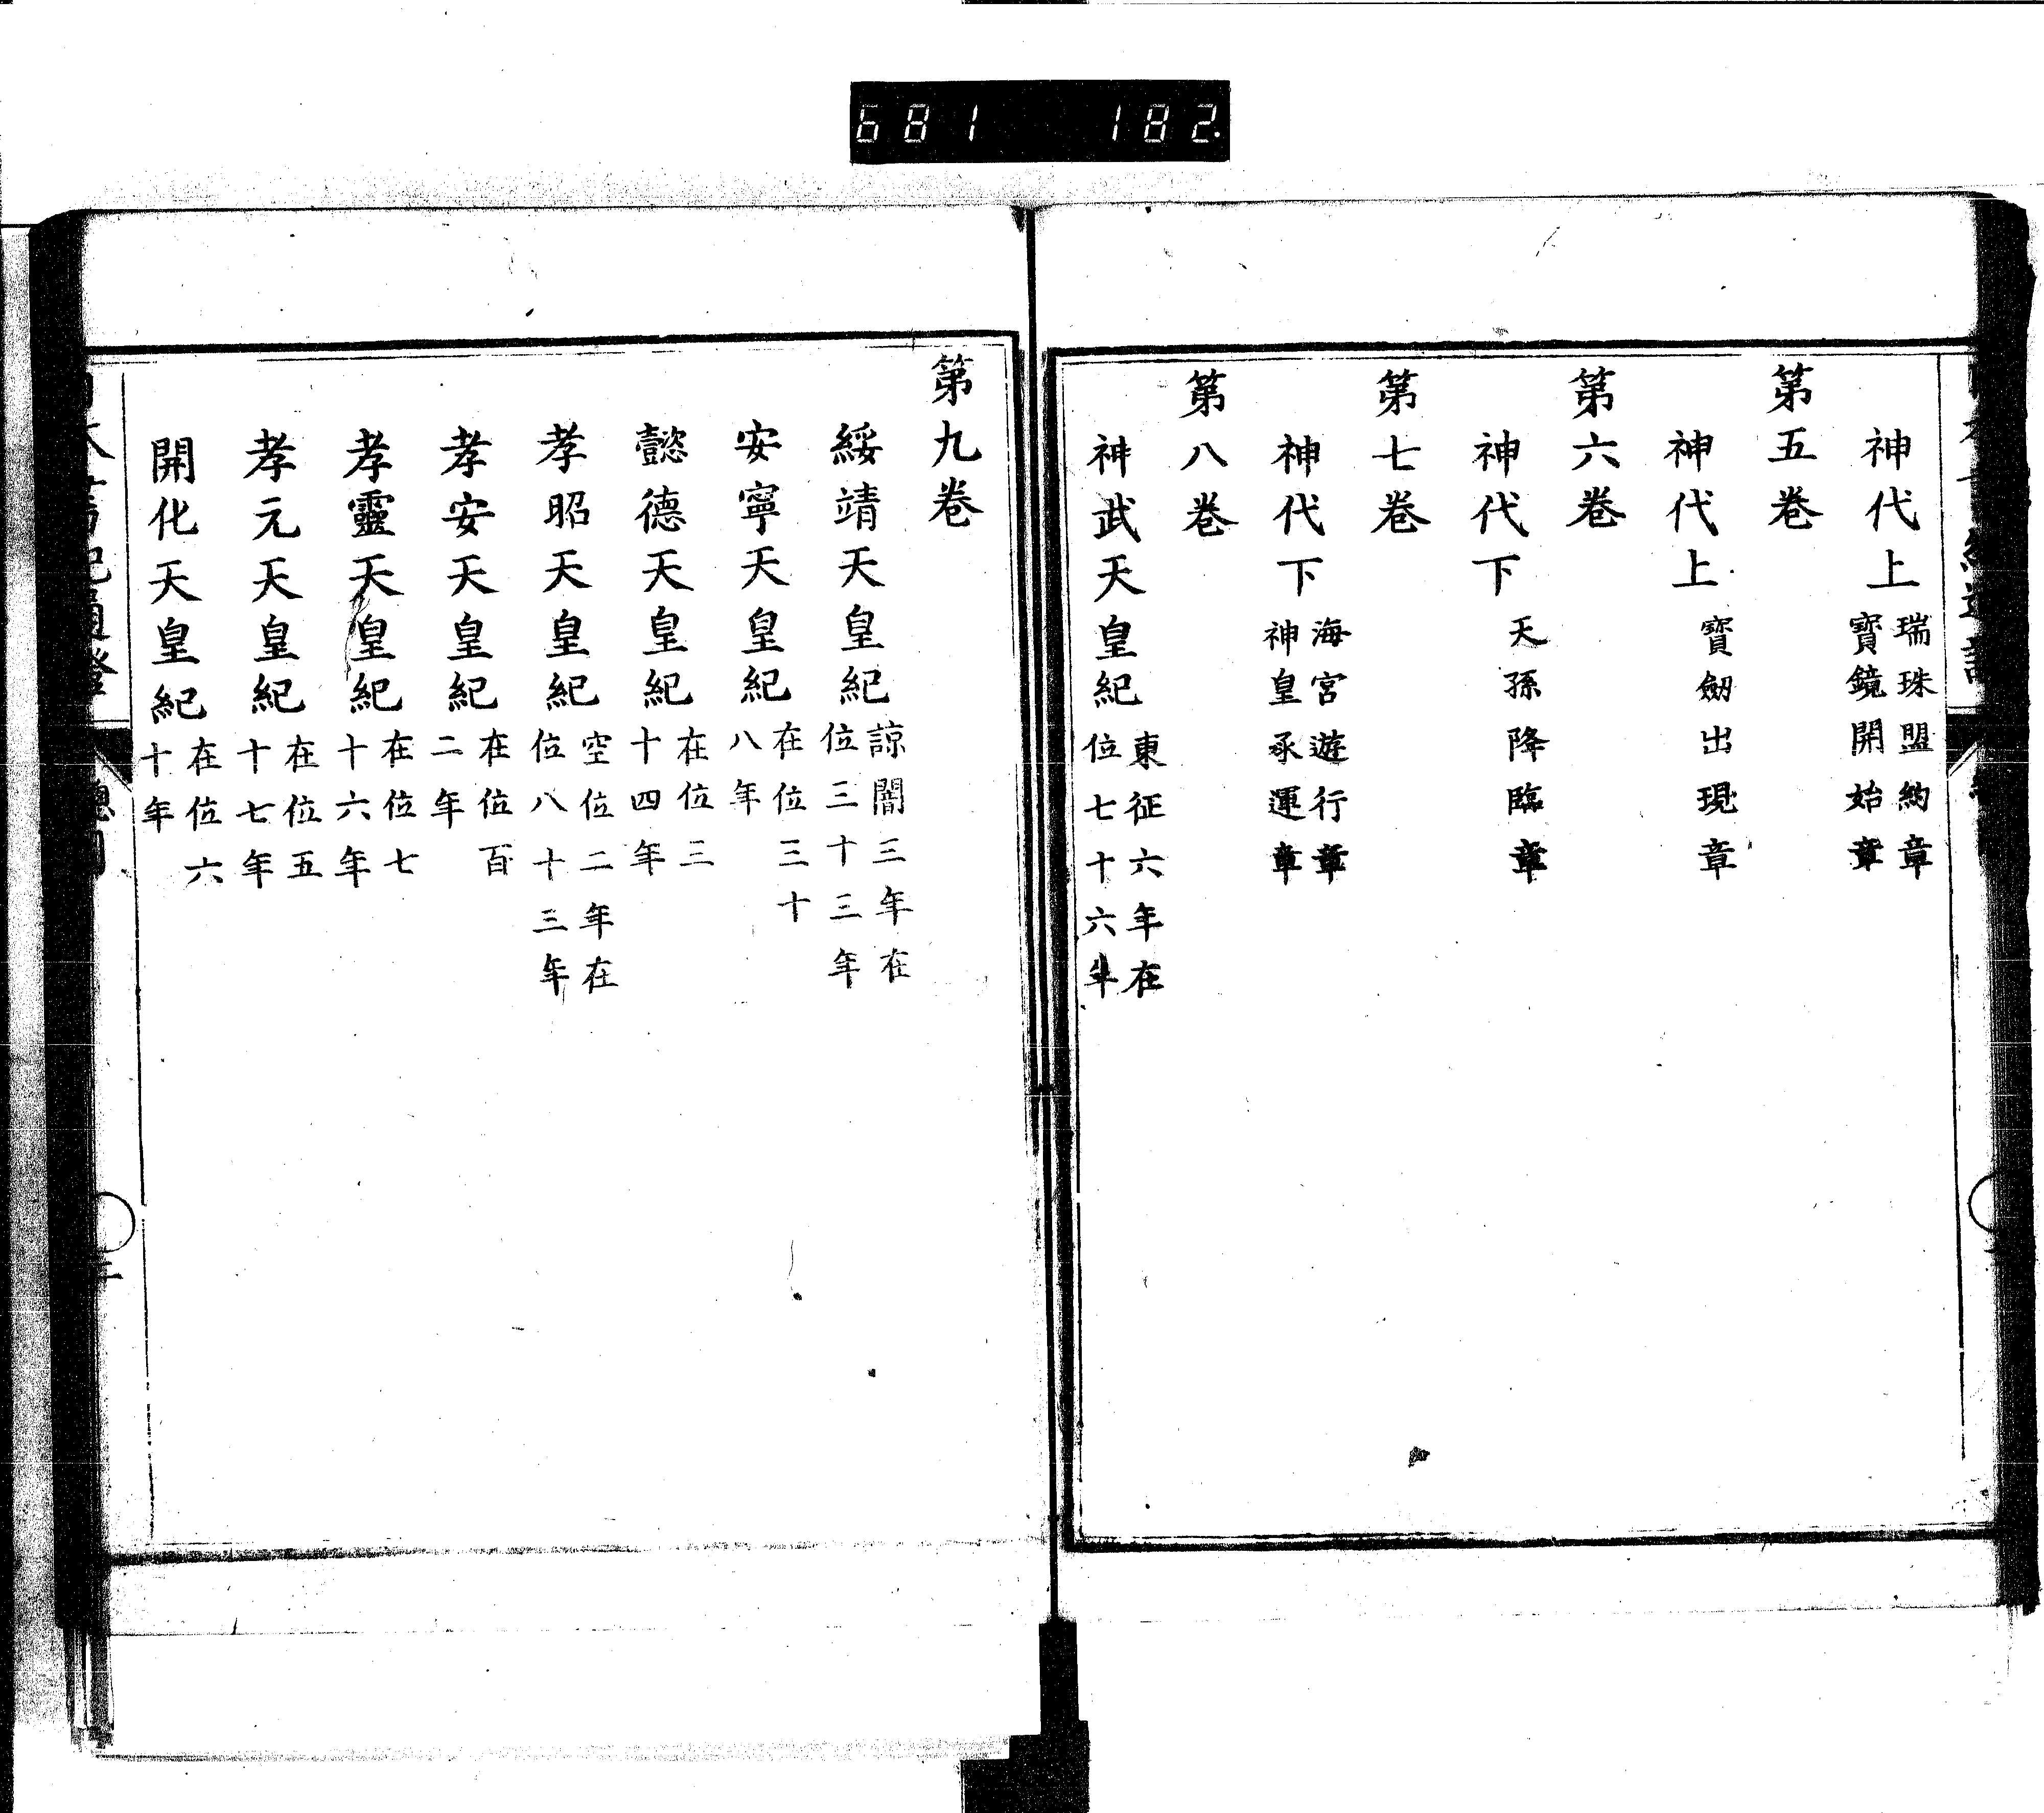 681 182
神代上 瑞珠盟約章
寶鏡開始章
第五卷
神代上 寶劒出現章
第六卷
神代下 天孫降臨章
第七卷
神代下 海宮遊行章
神皇承運章
第八卷
神武天皇紀 東征六年在
位七十六年
第九卷
綏靖天皇紀 諒闇三年在
位三十三年
安寧天皇紀 在位三十
八年
懿德天皇紀 在位三
十四年
孝昭天皇紀 空位二年在
位八十三年
孝安天皇紀 在位百
二年
孝靈天皇紀 在位七
十六年
孝元天皇紀 在位五
十七年
開化天皇紀 在位六
十年